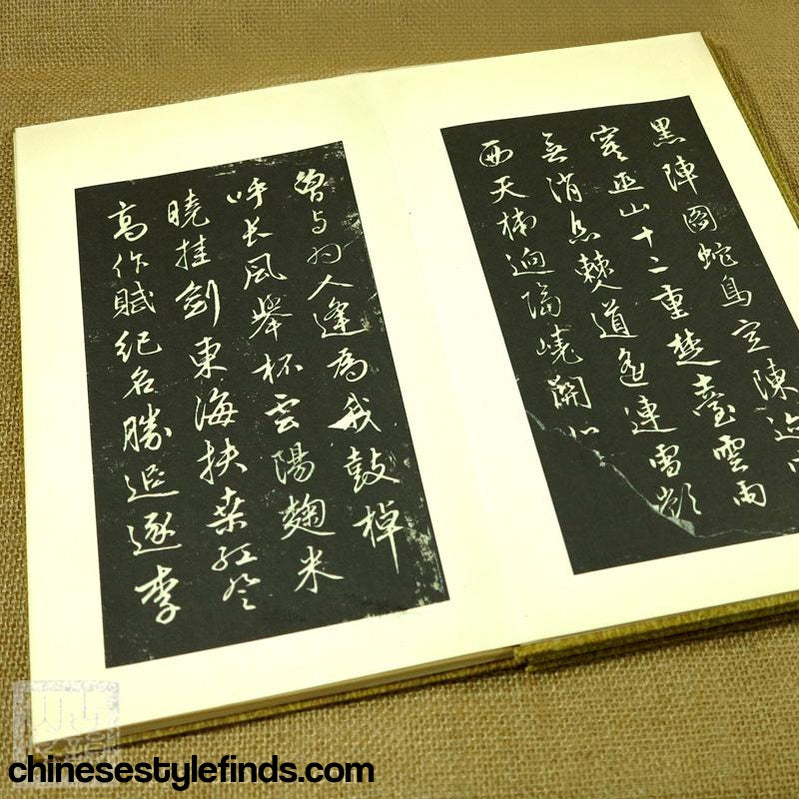 黑陣圖蛇鳥空陳迹
寒巫山十二重楚臺雲雨
無消息棧道遙連雪嶺
西天梯迥隔嶢關北
曾与为人逢為我鼓棹
呼长風舉杯雲陽麴米
曉挂剑東海扶桒紅今
高作賦紀名勝追逐李
chinesestylefinds.com